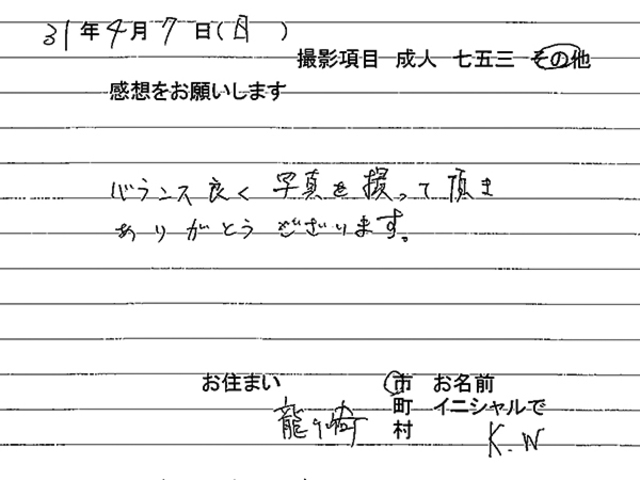 31年4月7日(日 )
撮影項目 成人 七五三 その他
感想をお願いします
バランス良く 写真を 撮って頂き
ありがとうございます。
お住まい 市 お名前
龍ケ崎 町 イニシャルで
村 K.W